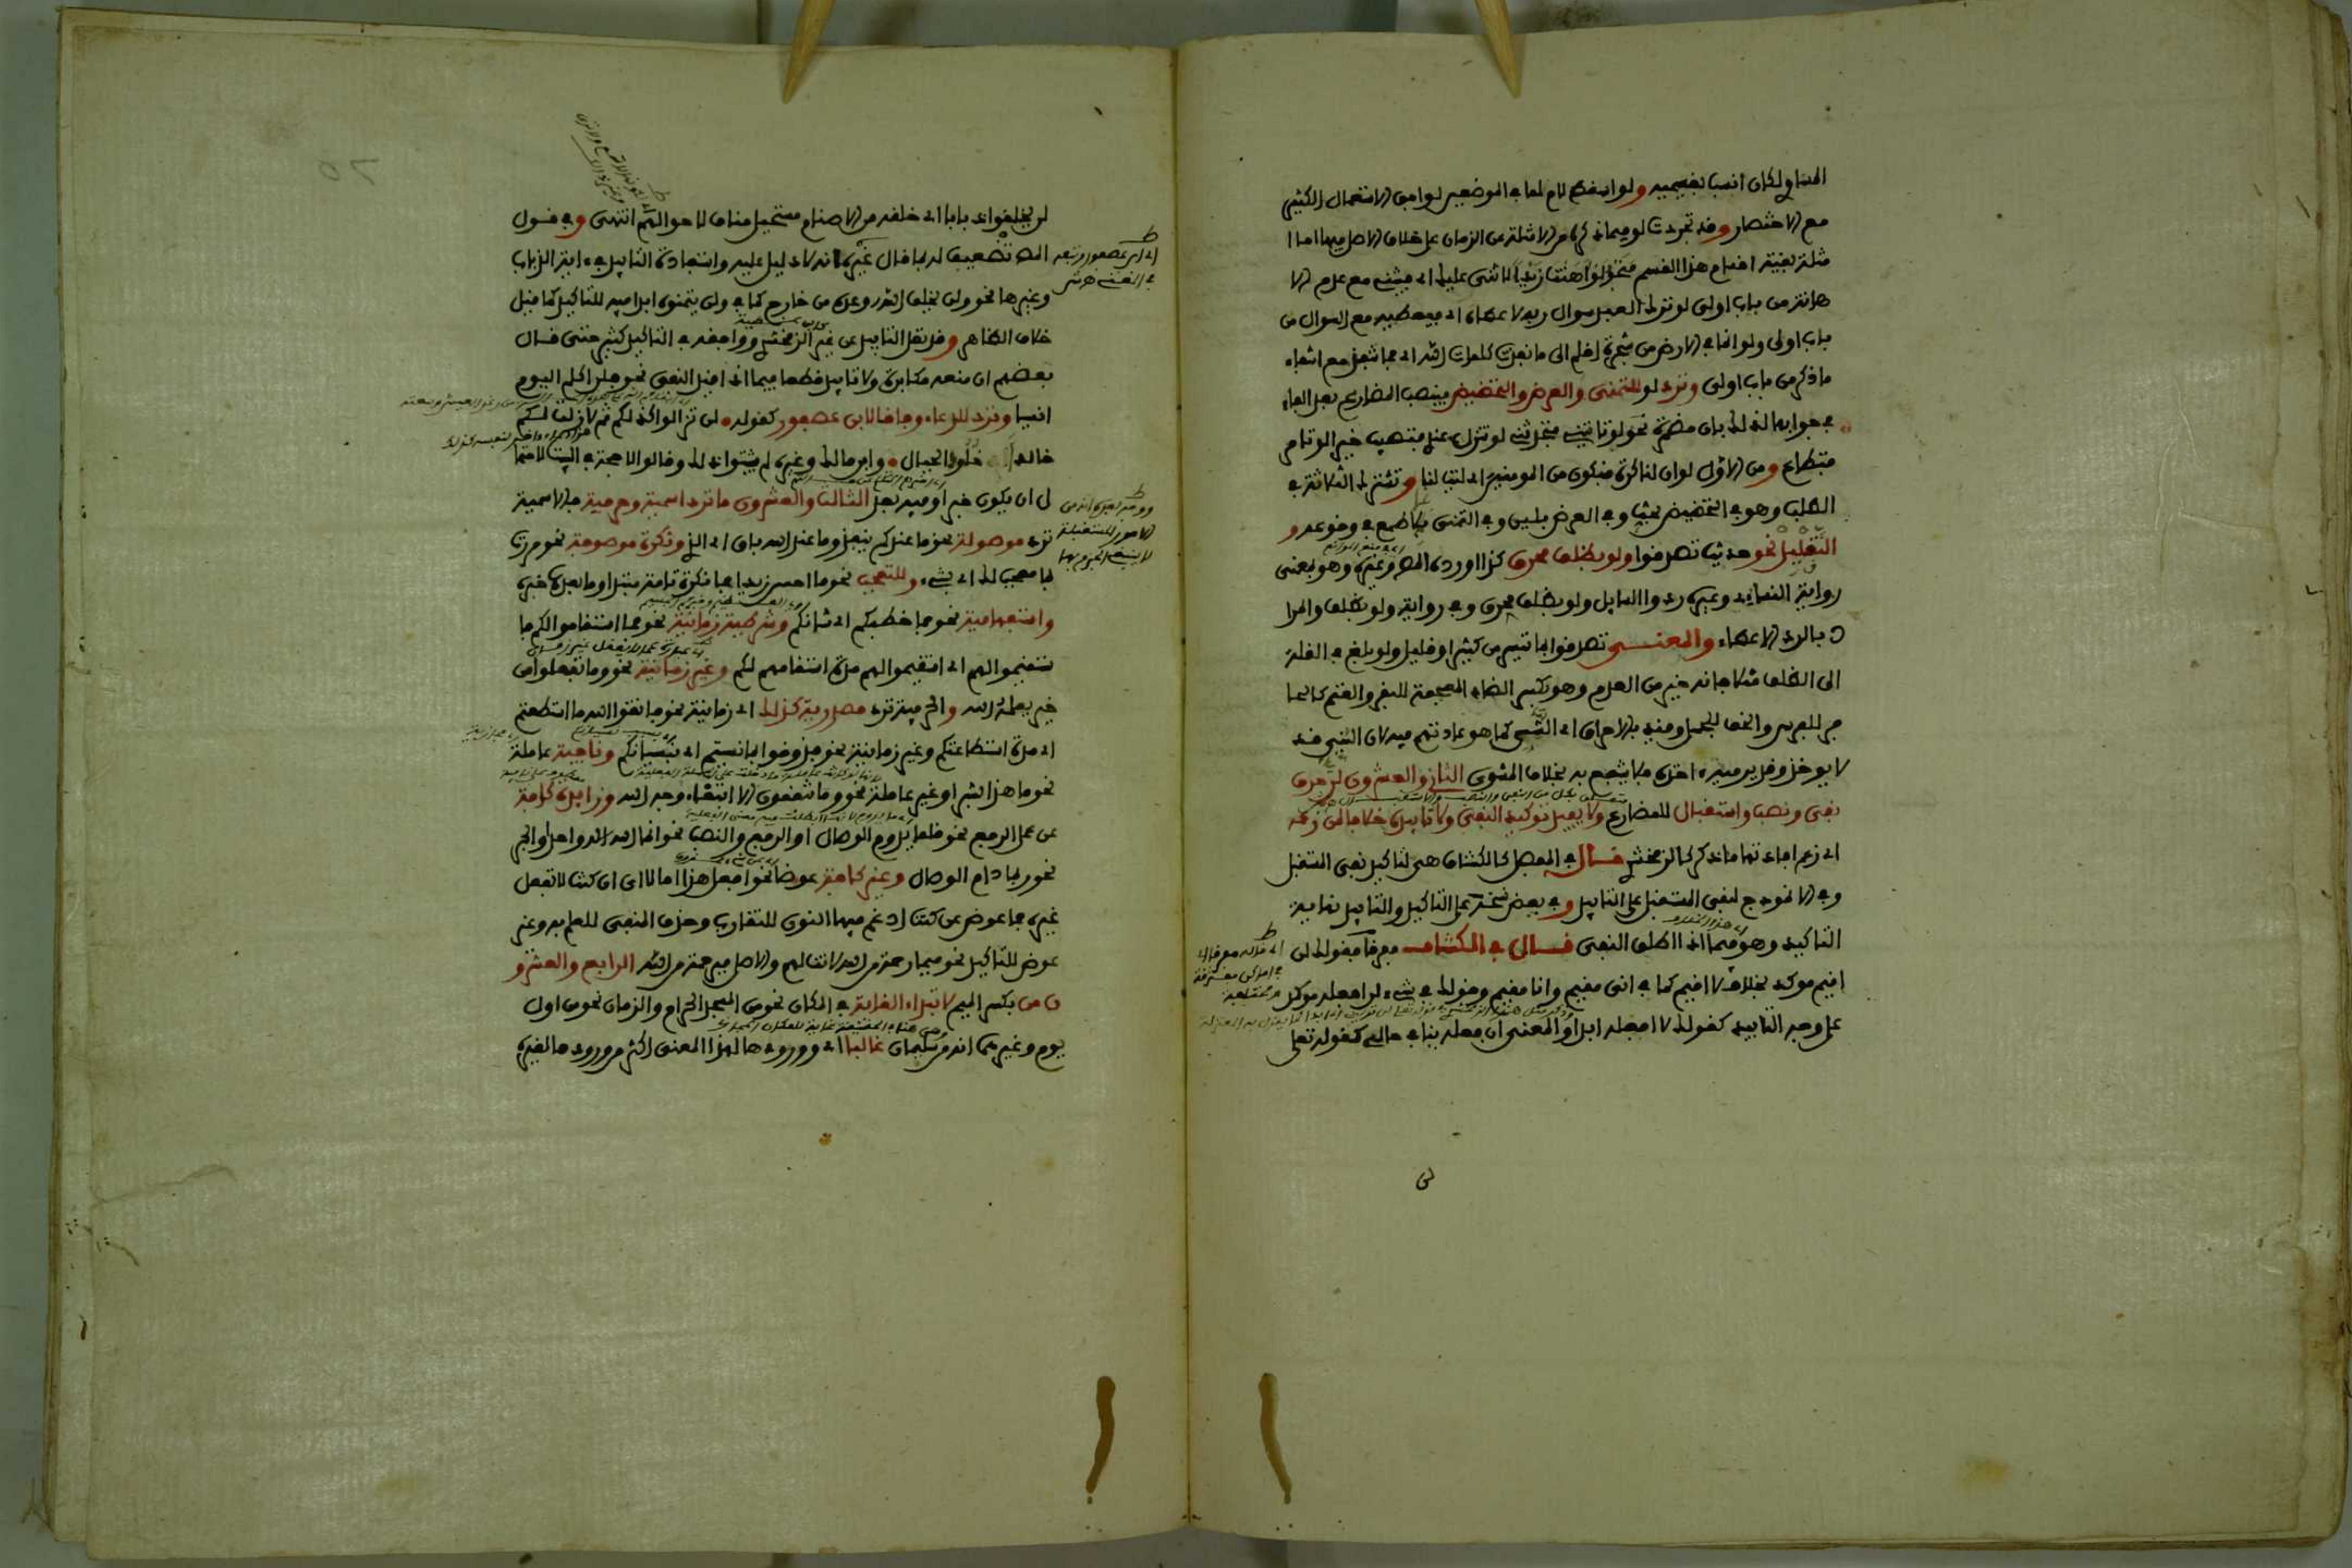 المساوي لكان انسب بقسيميه ولو اسقط لام لما في الموضعين لوافق الاستعمال الكثير
مع الاختصار وقد تجردت لو فيما ذكر من الامثلة عن الزمان على خلاف الاصل فيها اما ا
مثلة بقية اقسام هذا القسم فنحو لو اهنت زيدا لاثنى عليك اي فيثني مع عدم الا
هانة من باب اولى لو ترك العبد سوال ربه لاعطاه اي فيعطيه مع السوال من
باب اولى ولو انما في الارض من شجرة اقلام الى ما نفدت كلمات الله اي فما تنفد مع انتفاء
ما ذكر من باب اولى وترد لو للتمني والعرض والتحضيض فينصب المضارع بعد الفاء
في جوابها لذلك بان مضمرة نحو لو تاتيني فتحدثني لو تنزل عندي فتصيب خيرا لو تامر
فتطاع ومن الاول لو ان لنا كرة فنكون من المومنين اي ليت لنا وتشترك الثلاثة في
الطلب وهو في التحضيض بحث وفي العرض بلين وفي التمني لما لا طمع في وقوعه و
التقليل نحو حديث تصدقوا ولو بظلف محرق كذا اورده المص وغيره وهو بمعنى
رواية النساءي وغيره ردوا السايل ولو بظلف محرق وفي رواية ولو بظلف والمرا
د بالرد الاعطاء والمعنى تصدقوا بما تيسر من كثير او قليل ولو بلغ في القلة
الى الظلف مثلا فانه خير من العدم وهو بكسر الظاء المعجمة للبقر والغنم كالحا
فر للفرس والخف للجمل وقيد بالاحراق اي الشي كما هو عادتهم فيه لان النيء قد
لا يوخذ وقد يرميه اخذه فلا ينتفع به بخلاف المشوي الثاني والعشرون لن حرف
نفي ونصب واستقبال للمضارع ولا يفيد توكيد النفي ولا تابيده خلافا لمن زعمه
اي زعم افادتها ما ذكر كالزمخشري قال في المفصل كالكشاف هي لتاكيد نفي المستقبل
وفي الانموذج لنفي المستقبل على التابيد وفي بعض نسخه على التاكيد والتابيد نهاية
التاكيد وهو فيما اذا اطلق النفي قال في الكشاف مفرقا فقولك لن
اقيم موكد بخلاف لا اقيم كما في اني مقيم وانا مقيم وقولك في شيء لن افعله موكد
على وجه التابيد كقولك لا افعله ابدا والمعنى ان فعله ينافي حالي كقوله تعلى
لن
لن يخلقوا ذبابا اي خلقه من الاصنام مستحيل مناف لاحوالهم انتهى وفي قول
المص تضعيف له لما قال غيره انه لا دليل عليه واستفادة التابيد في اية الذباب
وغيرها نحو ولن يخلف الله وعده من خارج كما في ولن يتمنوه ابدا فيه للتاكيد كما قيل
خلاف الظاهر وقد نقل التابيد عن غير الزمخشري ووافقه في التاكيد كثير حتى قال
بعضهم ان منعه مكابرة ولا تابيد قطعا فيما اذا قيد النفي نحو فلن اكلم اليوم
انسيا وترد للدعاء وفاقا لابن عصفور كقوله لن تزالوا كذلكم ثم لا زلت لكم
خالدا خلود الجبال وابن مالك وغيره لم يثبتوا ذلك وقالوا لا حجة في البيت لاحتما
ل ان يكون خبرا وفيه بعد الثالث والعشرون ما ترد اسمية وحرفية فالاسمية
ترد موصولة نحو ما عندكم ينفد وما عند الله باق اي الذي ونكرة موصوفة نحو مررت
بما معجب لك اي بشيء وللتعجب نحو ما احسن زيدا فما نكرة تامة مبتدا وما بعدها خبره
واستفهامية نحو فما خطبكم اي شانكم وشرطية زمانية نحو فما استقاموا لكم فا
ستقيموا لهم اي استقيموا لهم مدة استقامتهم لكم وغير زمانية نحو وما تفعلوا من
خير يعلمه الله والحرفية ترد مصدرية كذلك اي زمانية نحو فاتقوا الله ما استطعتم
اي مدة استطاعتكم وغير زمانية نحو فذوقوا بما نسيتم اي بنسيانكم ونافية عاملة
نحو ما هذا بشرا وغير عاملة نحو وما تنفقون الا ابتغاء وجه الله وزايدة كافة
عن عمل الرفع نحو قلما يدوم الوصال او الرفع والنصب نحو انما الله اله واحد او الجر
نحو ربما دام الوصال وغير كافة عوضا نحو افعل هذا اما لا اي ان كنت لا تفعل
غيره فما عوض عن كنت ادغم فيها النون للتقارب وحذف المنفي للعلم به وغير
عوض للتاكيد نحو فبما رحمة من الله لنت لهم والاصل فبرحمة من الله الرابع والعشرو
ن من بكسر الميم لابتداء الغاية في المكان نحو من المسجد الحرام والزمان نحو من اول
يوم وغيرهما انه من سليمان غالبا اي وورودها لهذا المعنى اكثر من ورودها لغيره